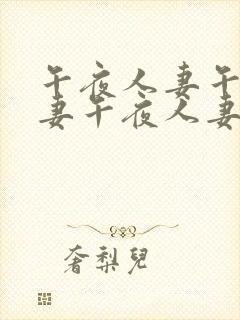 午夜人妻午
妻午夜人妻
奢梨儿